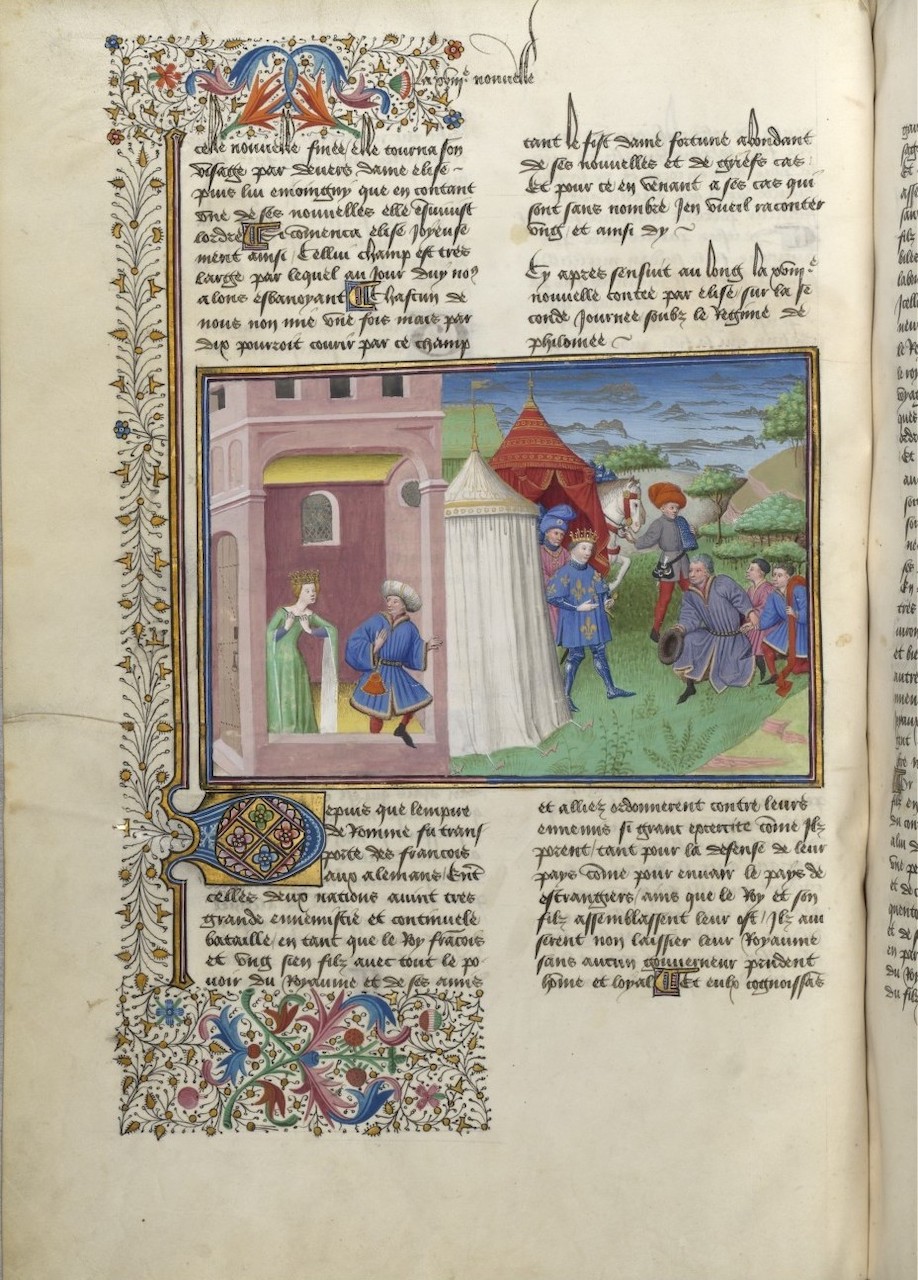 La viii.e nouvelle
celle nouvelle finee / elle tourna son
visage par devers dame elise ~
puis lui enioingny que en contant
une de ses nouvelles elle ensuiuist
lordre Et comenca elise Joyeuse
ment ainsi / Cellui champ est tres
large par lequel au Jour duy no9
alons esbanoyant Chascun de
nous non mie une fois mais par
dix pourroit courir par ce champ
tant le fist dame fortune abondant
de ses nouvelles et de griefs cas
Et pour ce en venant a ses cas qui
sont sans nombre Jen vueil raconter
ung et ainsi dy ~
Cy apres sensuit au long la viii.e
nouvelle contee par elise sur la se
conde Journee soubz le Regime de
philomee ~
Depuis que lempire
de Romme fu trans
porte des francois
aux alemans / Entre
celles deux nations avint tres
grande ennemistie et continuele
bataille / en tant que le Roy francois
et ung sien filz avec tout le po
voir du Royaume et de ses amis
et alliez ordonnerent contre leurs
ennemis si grant exercite come Ilz
porent / tant pour la defense de leur
pays come pour envair le pays de
estrangiers / ains que le Roy et son
filz assemblassent leur ost / Ilz aui
serent non laissier leur Royaume
sans aucun gouverneur prudent
home et loyal Et eulx cognoissās